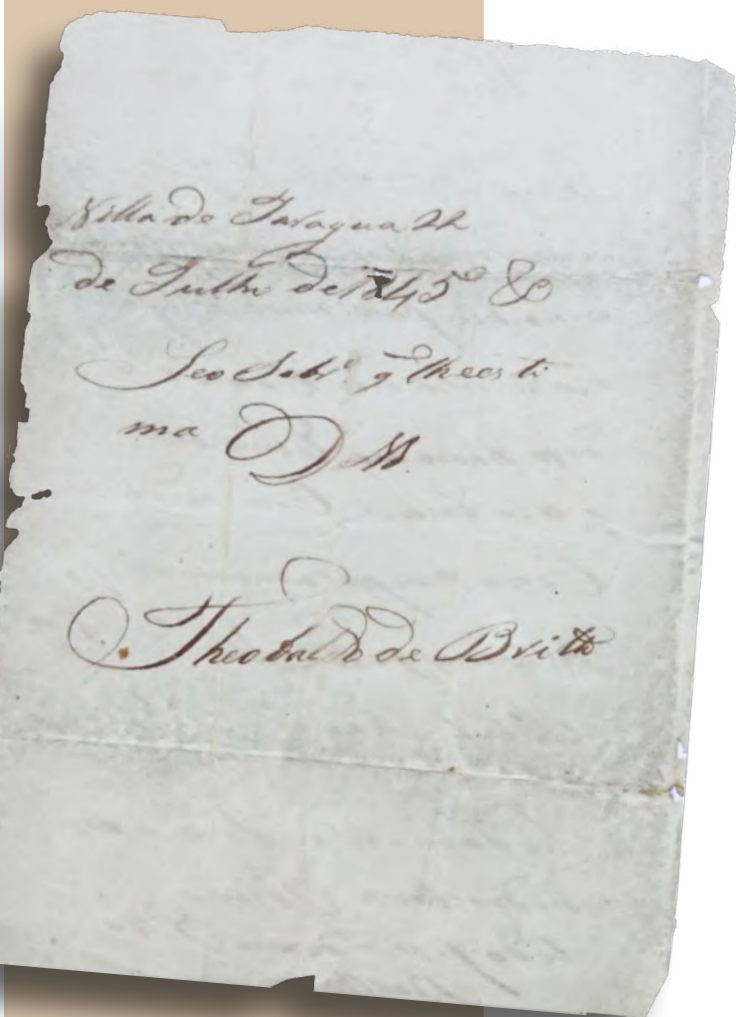 Villa de Jaragua 22
de Julho de 1845 &
Seo Sobr.º q̃ lhe esti
ma D M
Theobaldo de Brito